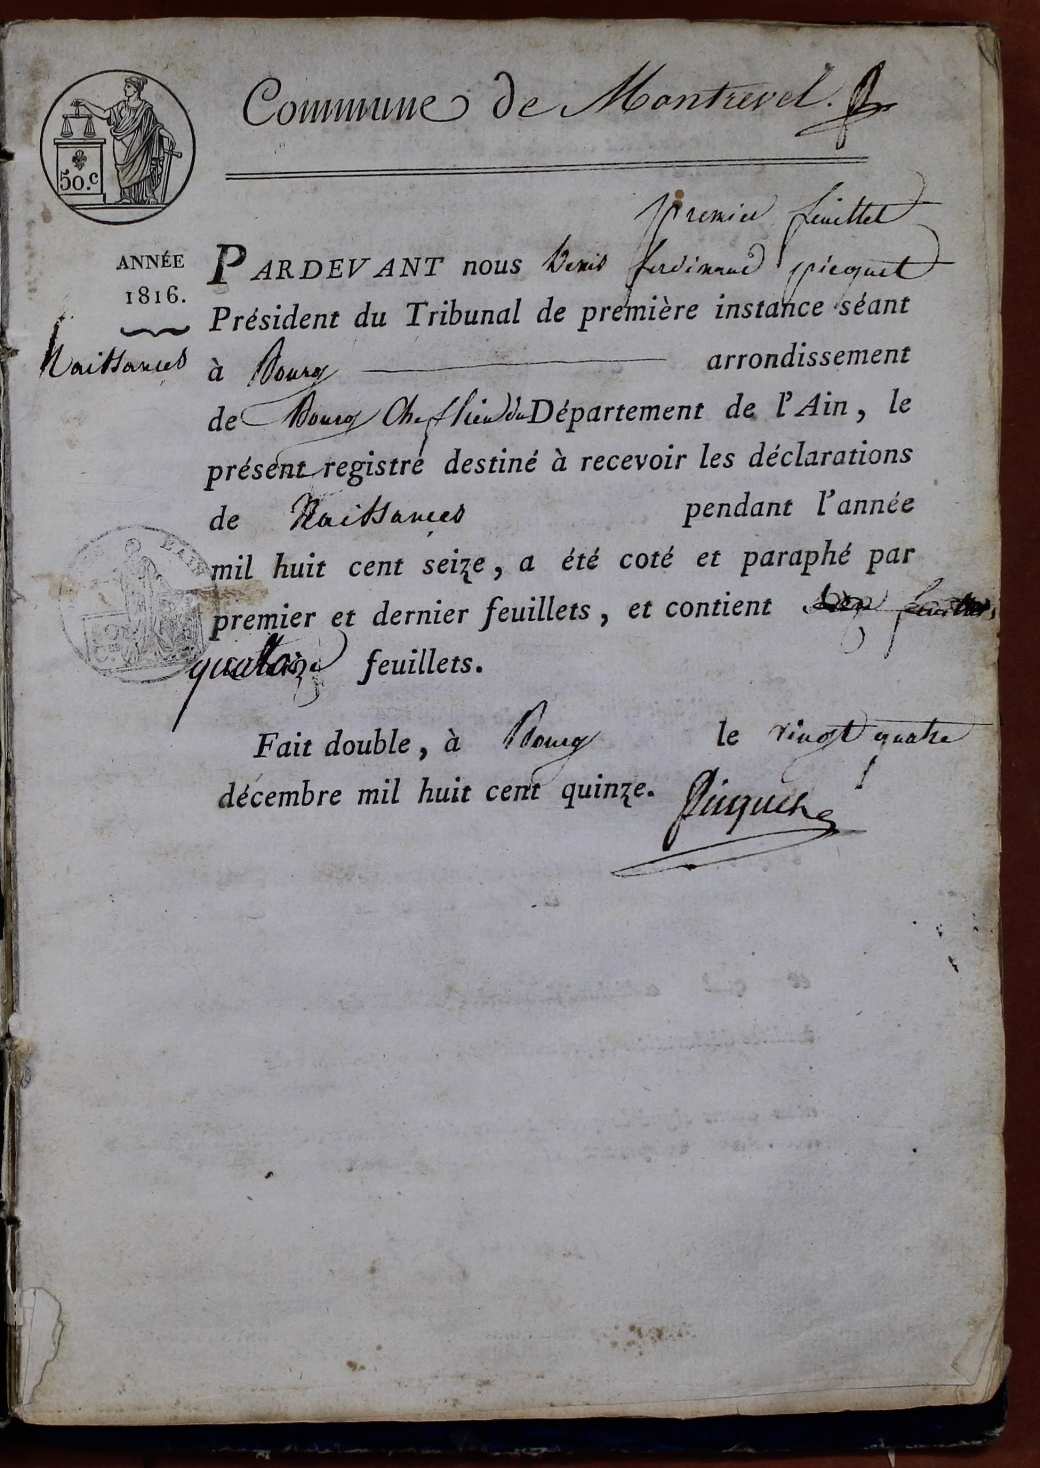 Commune de Montrevel.
50.c
premier feuillet
ANNÉE
1816.
Naissances
PARDEVANT nous Denis ferdinand picquet
Président du Tribunal de première instance séant
à Bourg arrondissement
de Bourg Chef lieu du Département de l'Ain, le
présent registre destiné à recevoir les déclarations
de Naissances pendant l'année
mil huit cent seize, a été coté et paraphé par
premier et dernier feuillets, et contient
quatorze feuillets.
Fait double, à Bourg le vingt quatre
décembre mil huit cent quinze.
Picquet